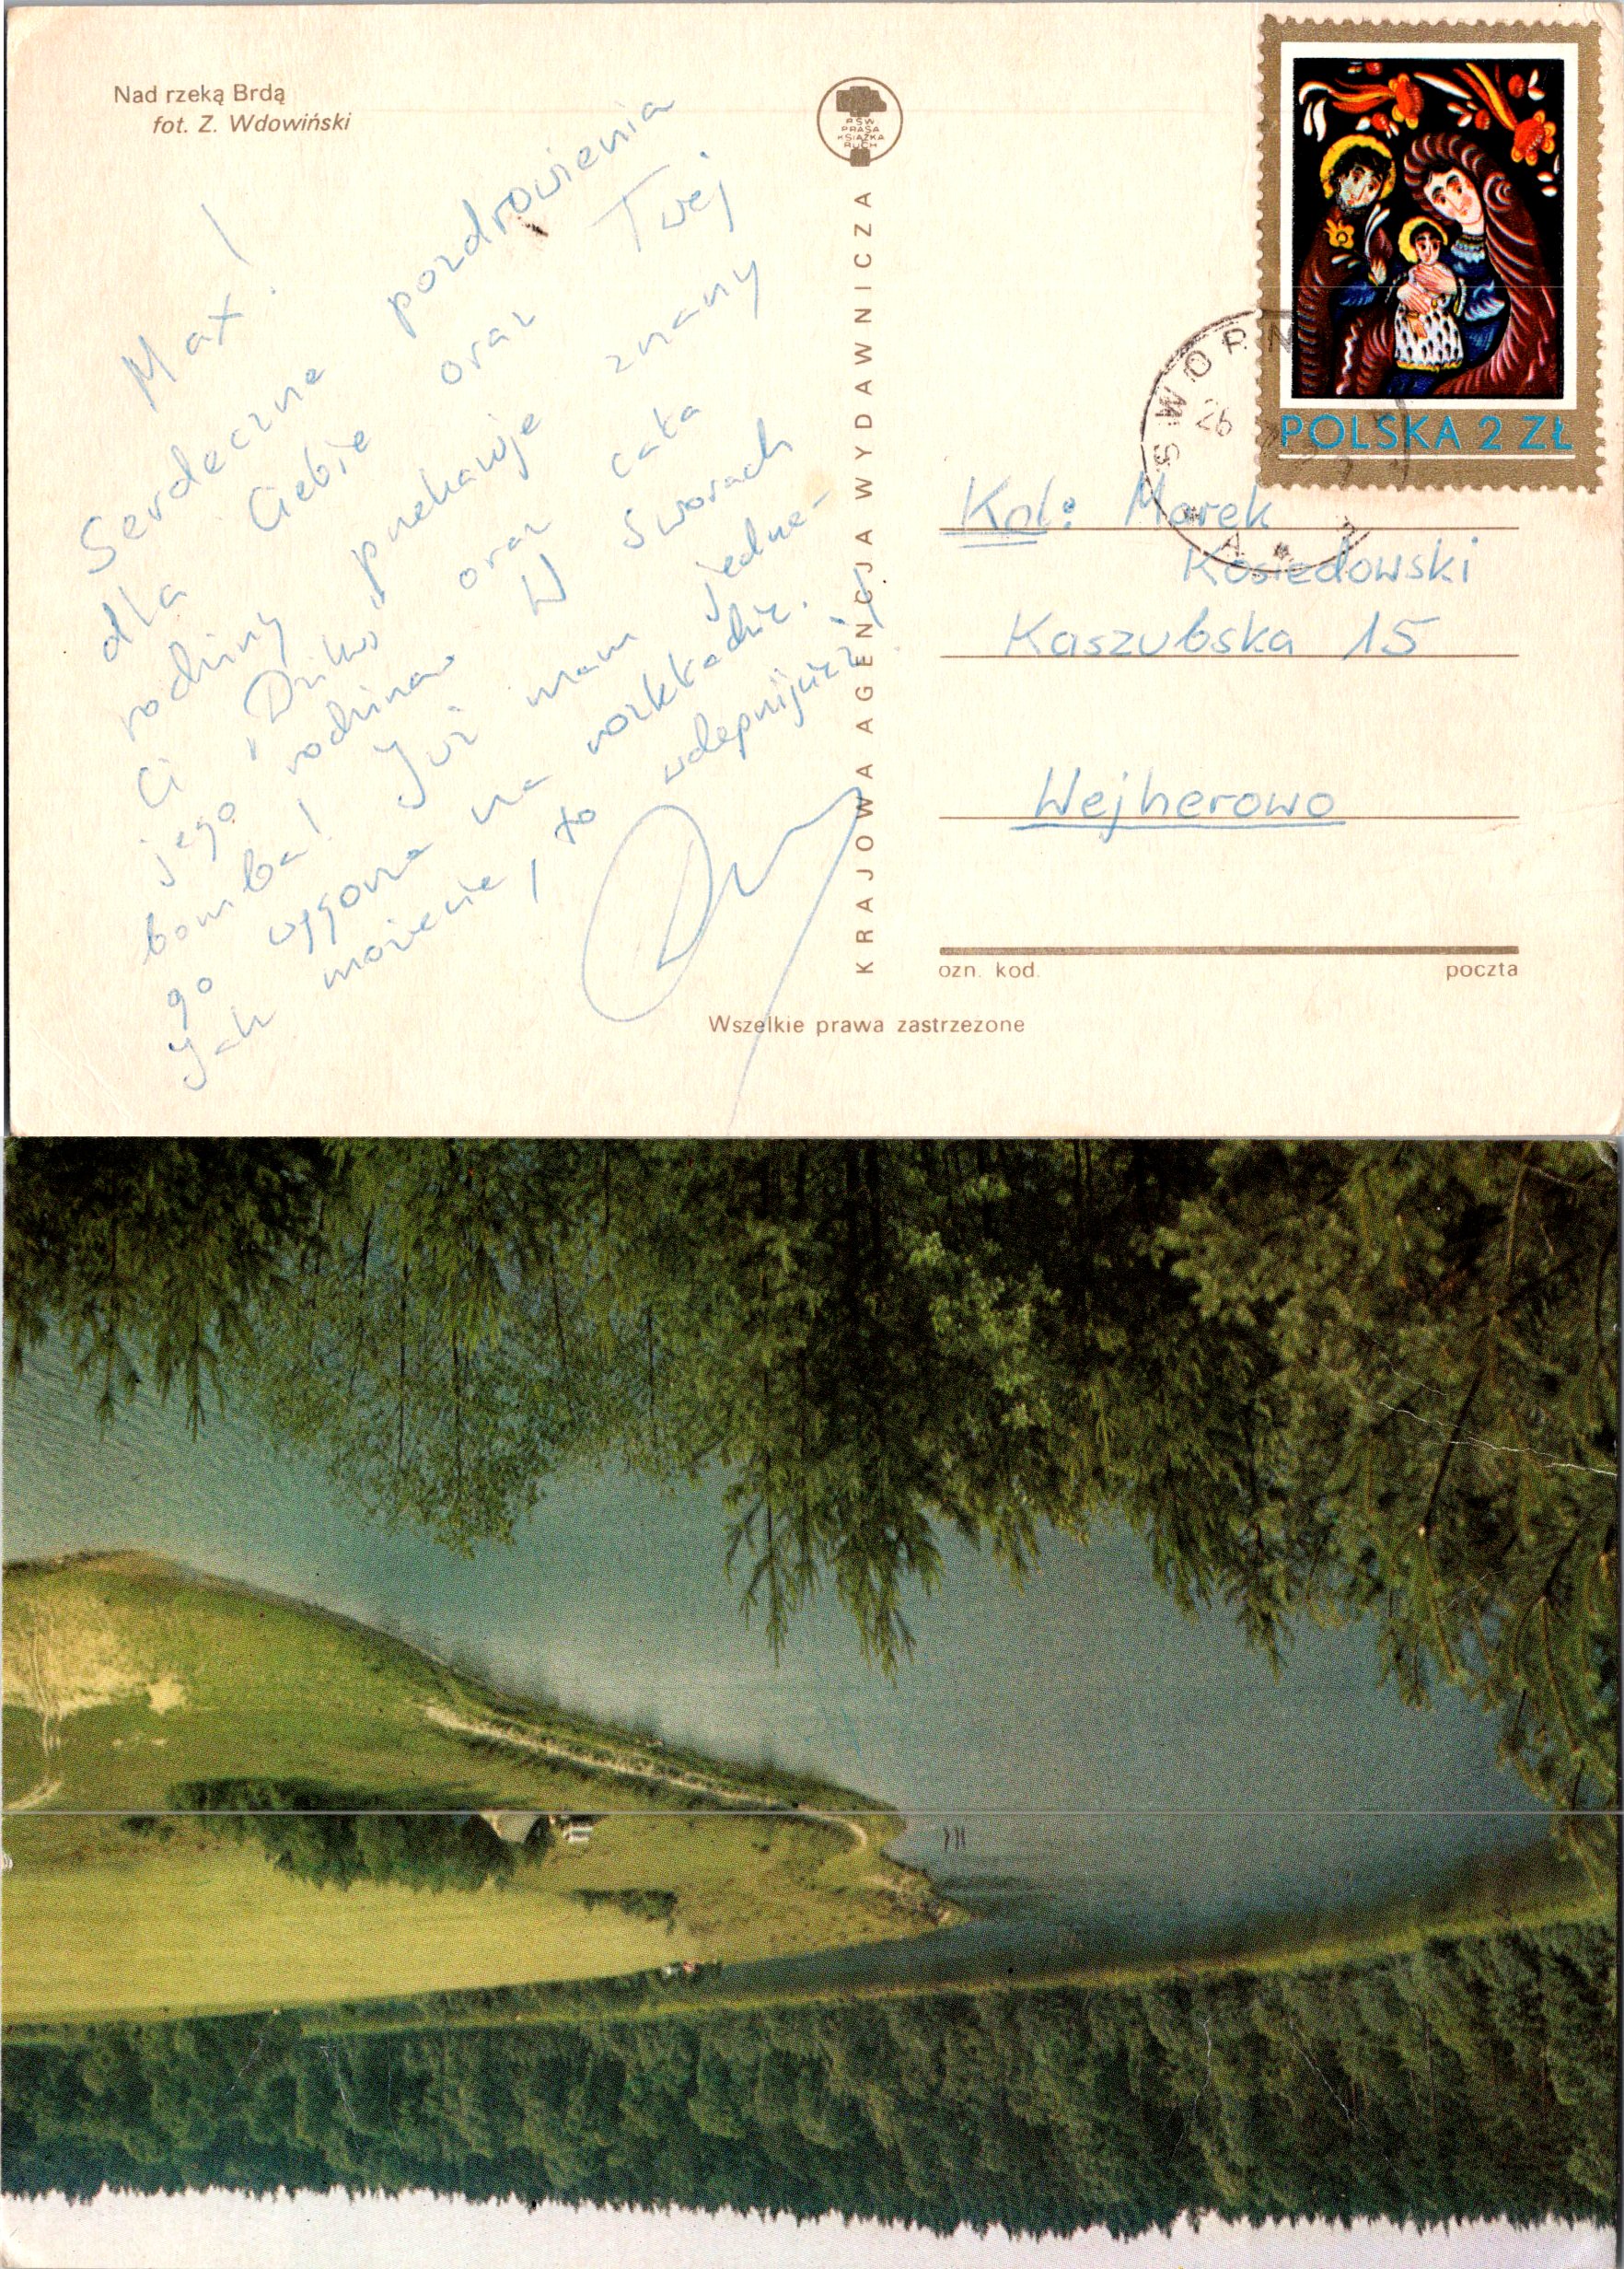 Nad rzeką Brdą
fot. Z. Wdowiński
PSW
PRASA
KSIĄŻKA
RUCH
POLSKA 2 ZŁ
SWORN
26
Max!
Serdeczne pozdrowienia
dla Ciebie oraz Twej
rodziny przekazuje znany
Ci „Dzikus" oraz cała
jego rodzina. W Sworach
bomba! Już mam jedne-
go wygona na rozkładzie.
Jak możecie, to wdepnijcie!
KRAJOWA AGENCJA WYDAWNICZA
Kol: Marek
Kosiedowski
Kaszubska 15
Wejherowo
ozn. kod.
poczta
Wszelkie prawa zastrzeżone